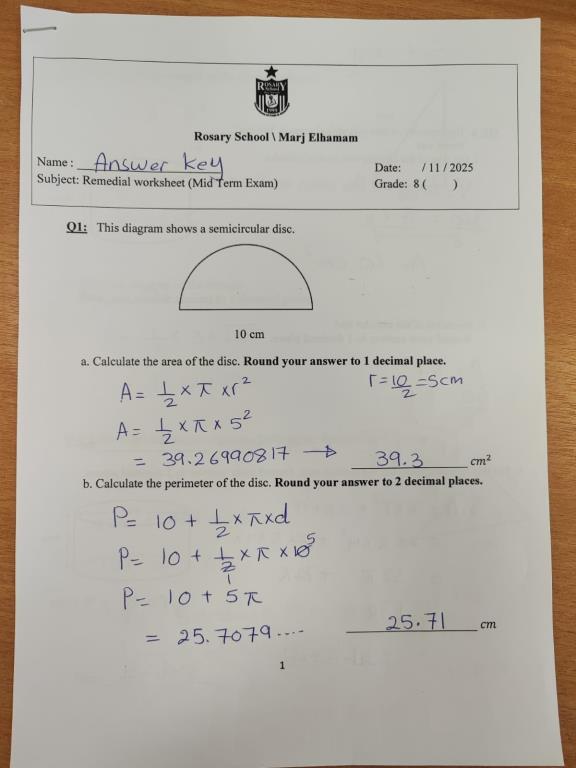 ROSARY
School
1993
Rosary School \ Marj Elhamam
Name : Answer key
Date: / 11 / 2025
Subject: Remedial worksheet (Mid Term Exam)
Grade: 8 ( )
Q1: This diagram shows a semicircular disc.
10 cm
a. Calculate the area of the disc. Round your answer to 1 decimal place.
A = 1/2 × π × r² r = 10/2 = 5cm
A = 1/2 × π × 5²
= 39.26990817 → 39.3 cm²
b. Calculate the perimeter of the disc. Round your answer to 2 decimal places.
P = 10 + 1/2 × π × d
P = 10 + 1/2 × π × 10 5
1
P = 10 + 5π
= 25.7079.... 25.71 cm
1